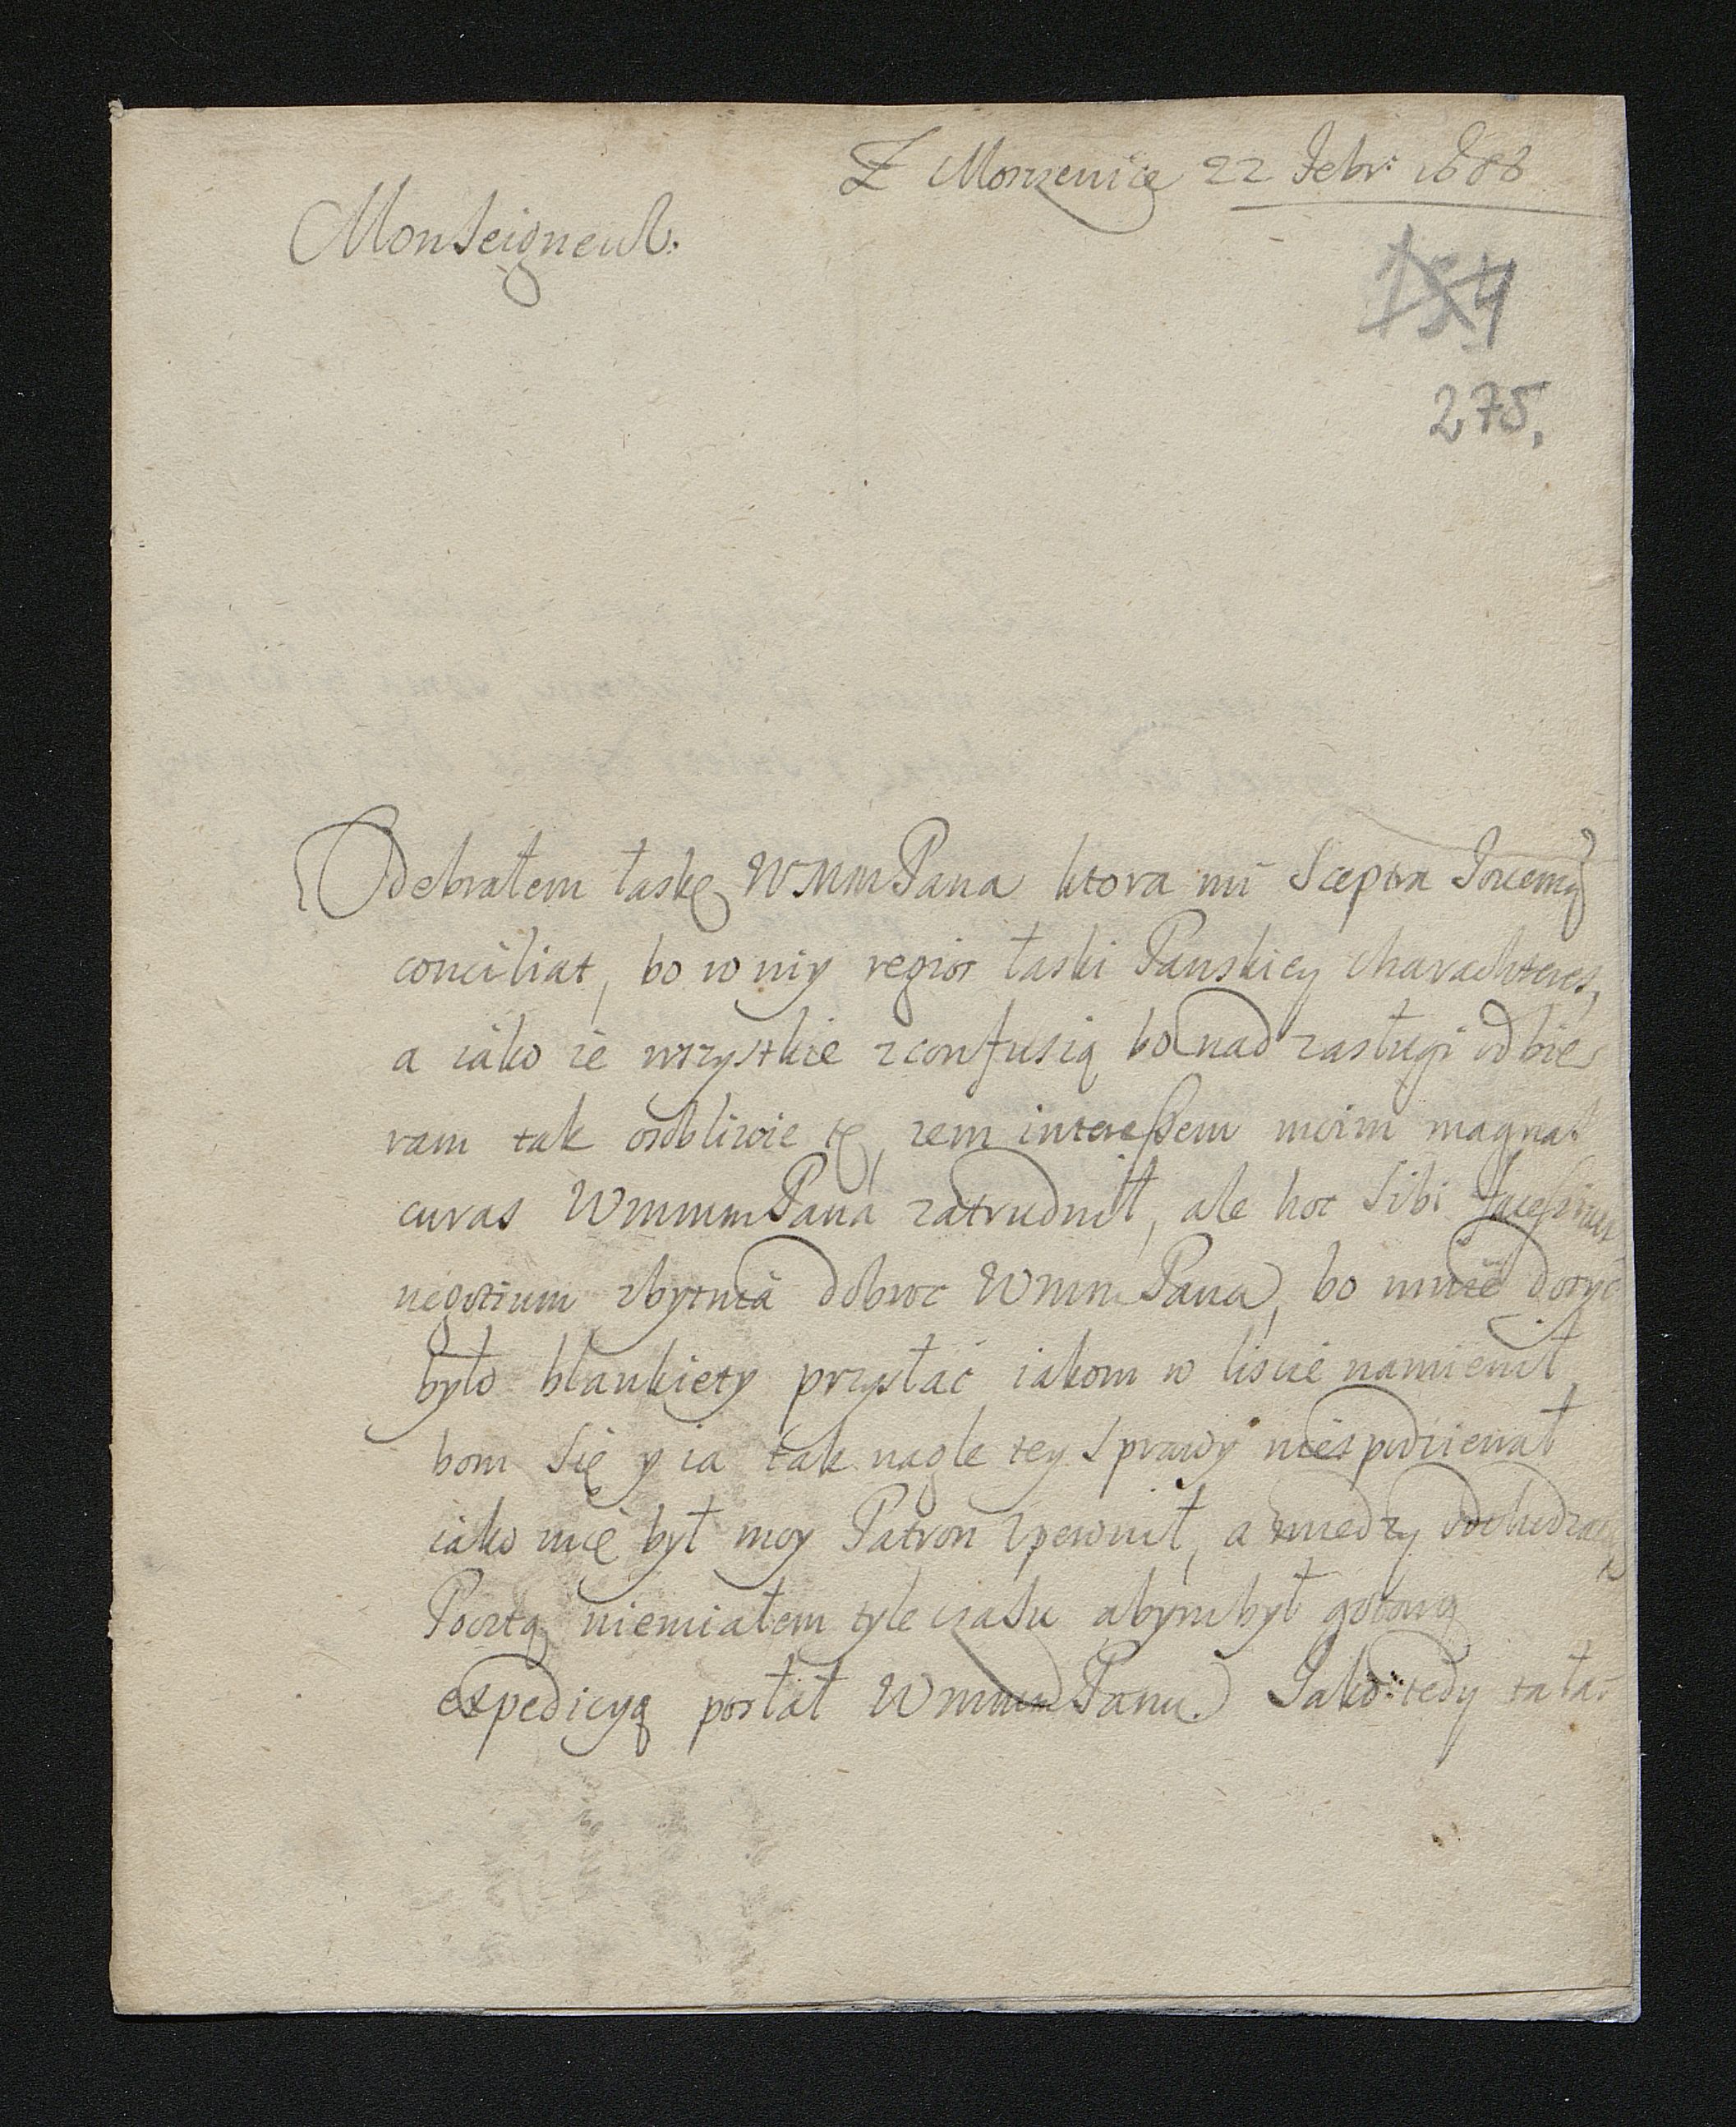 Z Morzenice 22 Febr: 1688
MonSeigneur.
154
275.
Odebrałem łaskę WMM Pana ktora mi Sceptra
conciliat, bo w niy łaski Panskiey charachteres,
a iako ie wszystkie z confusią bo nad zasługi odbie
ram tak osobliwie tę, zem interessem moim magnas
curas WMMM Pana zatrudnił, ale hoc Sibi
negotium zbytnia dobroc WMM Pana, bo mnie dosyc
było blankiety przysłać iakom w liscie namienił
bom Się y ia tak nagle tey Sprawy niespodziewał
iako mię był moy Patron vpewnił, a
Pocztą niemiałem tyle czasu abym był gotową
expedicyą posłał WMMM Panu. Jako tedy ta ła-